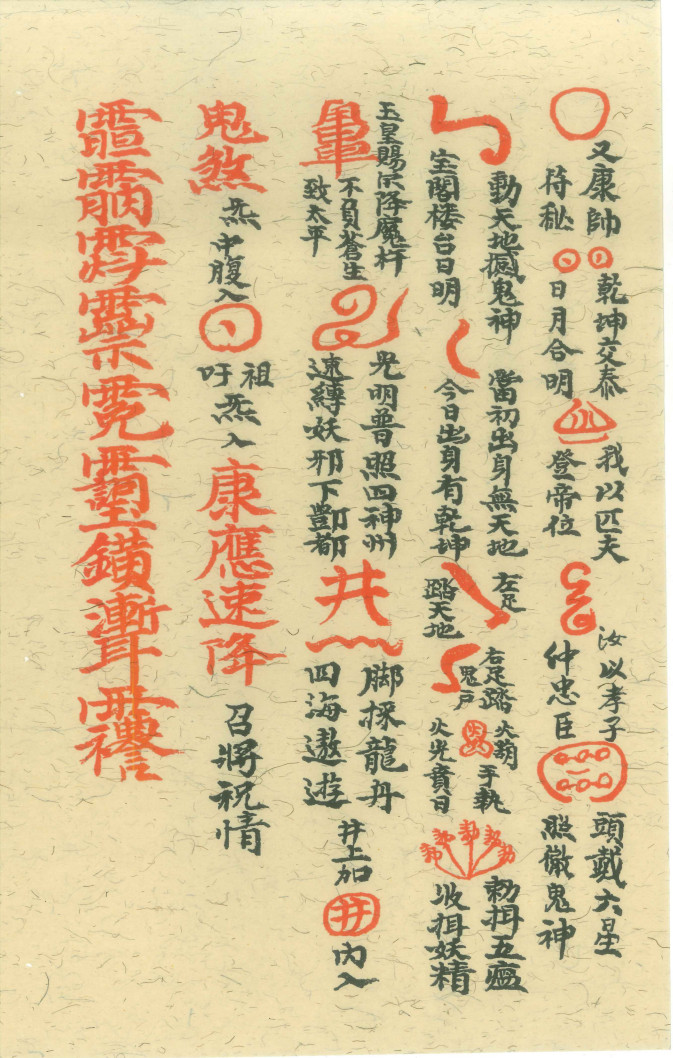 又康帥
符秘
乾坤交泰
日月合明
我以匹夫
登帝位
汝以孝子
仲忠臣
頭戴六星
照徹鬼神
動天地撼鬼神
宝閣楼台日明
當初出身無天地
今日出身有乾坤
左足
踏天地
右足踏
鬼戶
火葫
手執
火光賁日
勅捐五瘟
收捐妖精
玉皇賜汝降魔杵
不負蒼生
致太平
光明普照四神州
速縛妖邪下酆都
井
脚採龍丹
四海遨遊
井上加
井
內入
鬼煞
炁中腹入
祖
吁炁入
康應速降
召將祝情